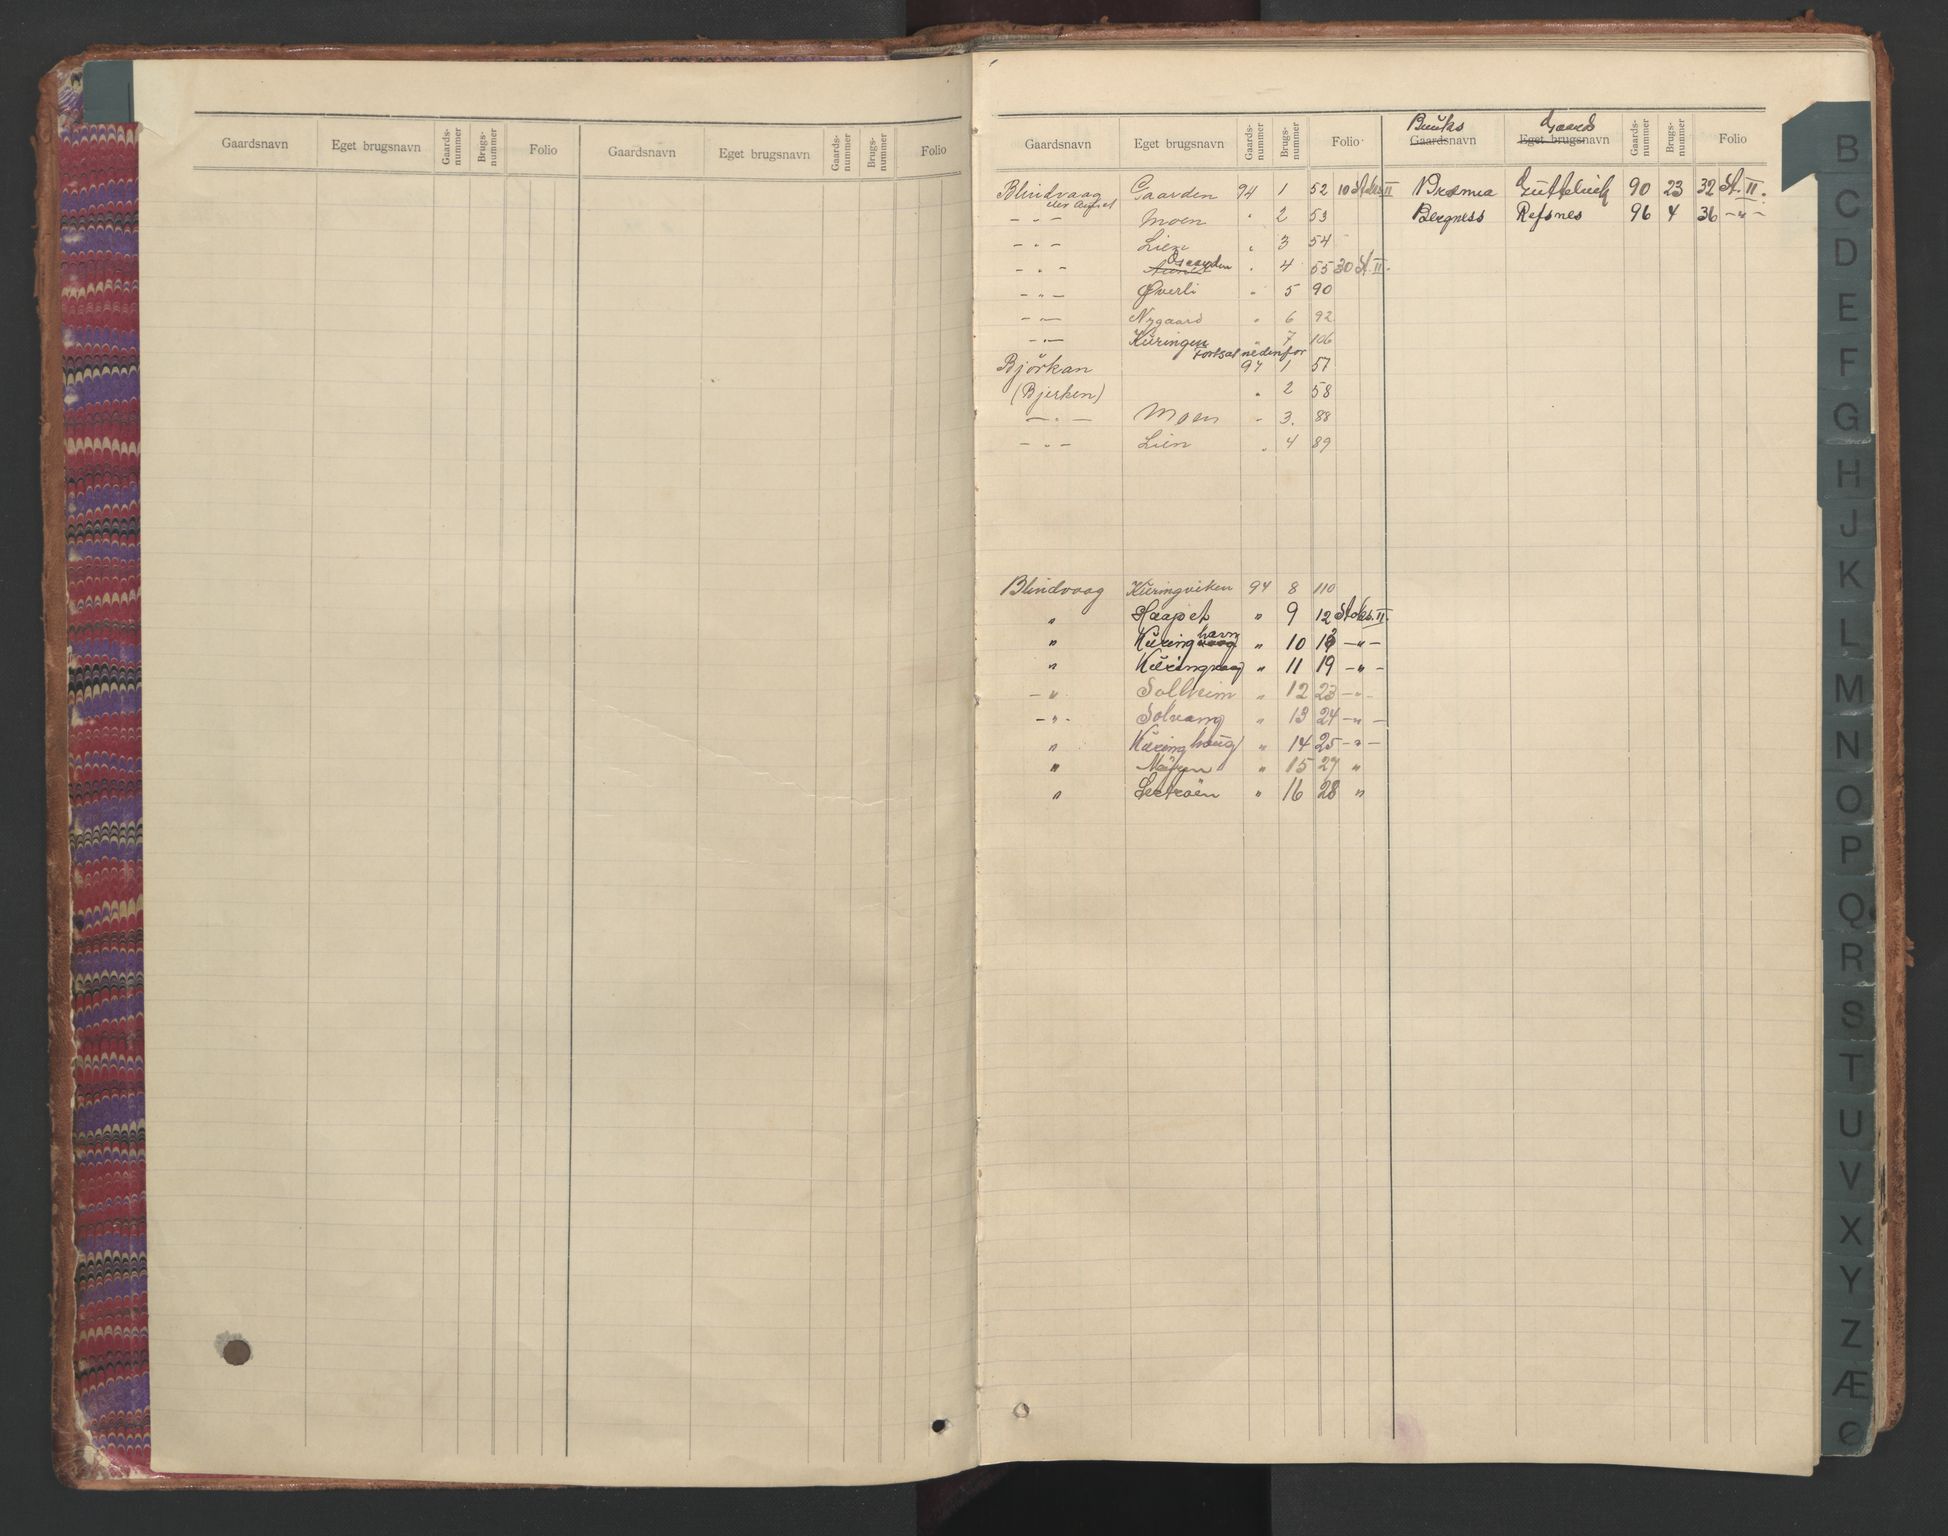 Gaardsnavn Eget brugsnavn Gaards-nummer Brugs-nummer Folio Gaardsnavn Eget brugsnavn Gaards-nummer Brugs-nummer Folio
Bruks Gaards
Gaardsnavn Eget brugsnavn Gaards-nummer Brugs-nummer Folio Gaardsnavn Eget brugsnavn Gaards-nummer Brugs-nummer Folio
Blindvaag Gaarden 94 1 52 10 Stoks II Bræmea 90 23 32 St. II.
- " - Moen " 2 53 Bergness Refsnes 96 4 36 - " -
- " - Lien " 3 54
- " - " 4 55 30 St. II.
- " - Øverli " 5 90
- " - Nygaard " 6 92
- " - Kæringen " 7 106
Fortsat nedenfor
Bjørkan 97 1 57
(Bjerken) " 2 58
- " - Moen " 3. 88
- " - Lien " 4 89
Blindvaag Kæringviken 94 8 110
" Haapet " 9 12 Stoks. II.
" Kæringhavn " 10 - " -
" Kæringvaag " 11 19 - " -
- " - Solheim " 12 23 - " -
- " - Solvang " 13 24 - " -
" Kæringhaug " 14 25 - " -
" " 15 27 "
" " 16 28 "
B
C
D
E
F
G
H
J
K
L
M
N
O
P
Q
R
S
T
U
V
X
Y
Z
Æ
Ø